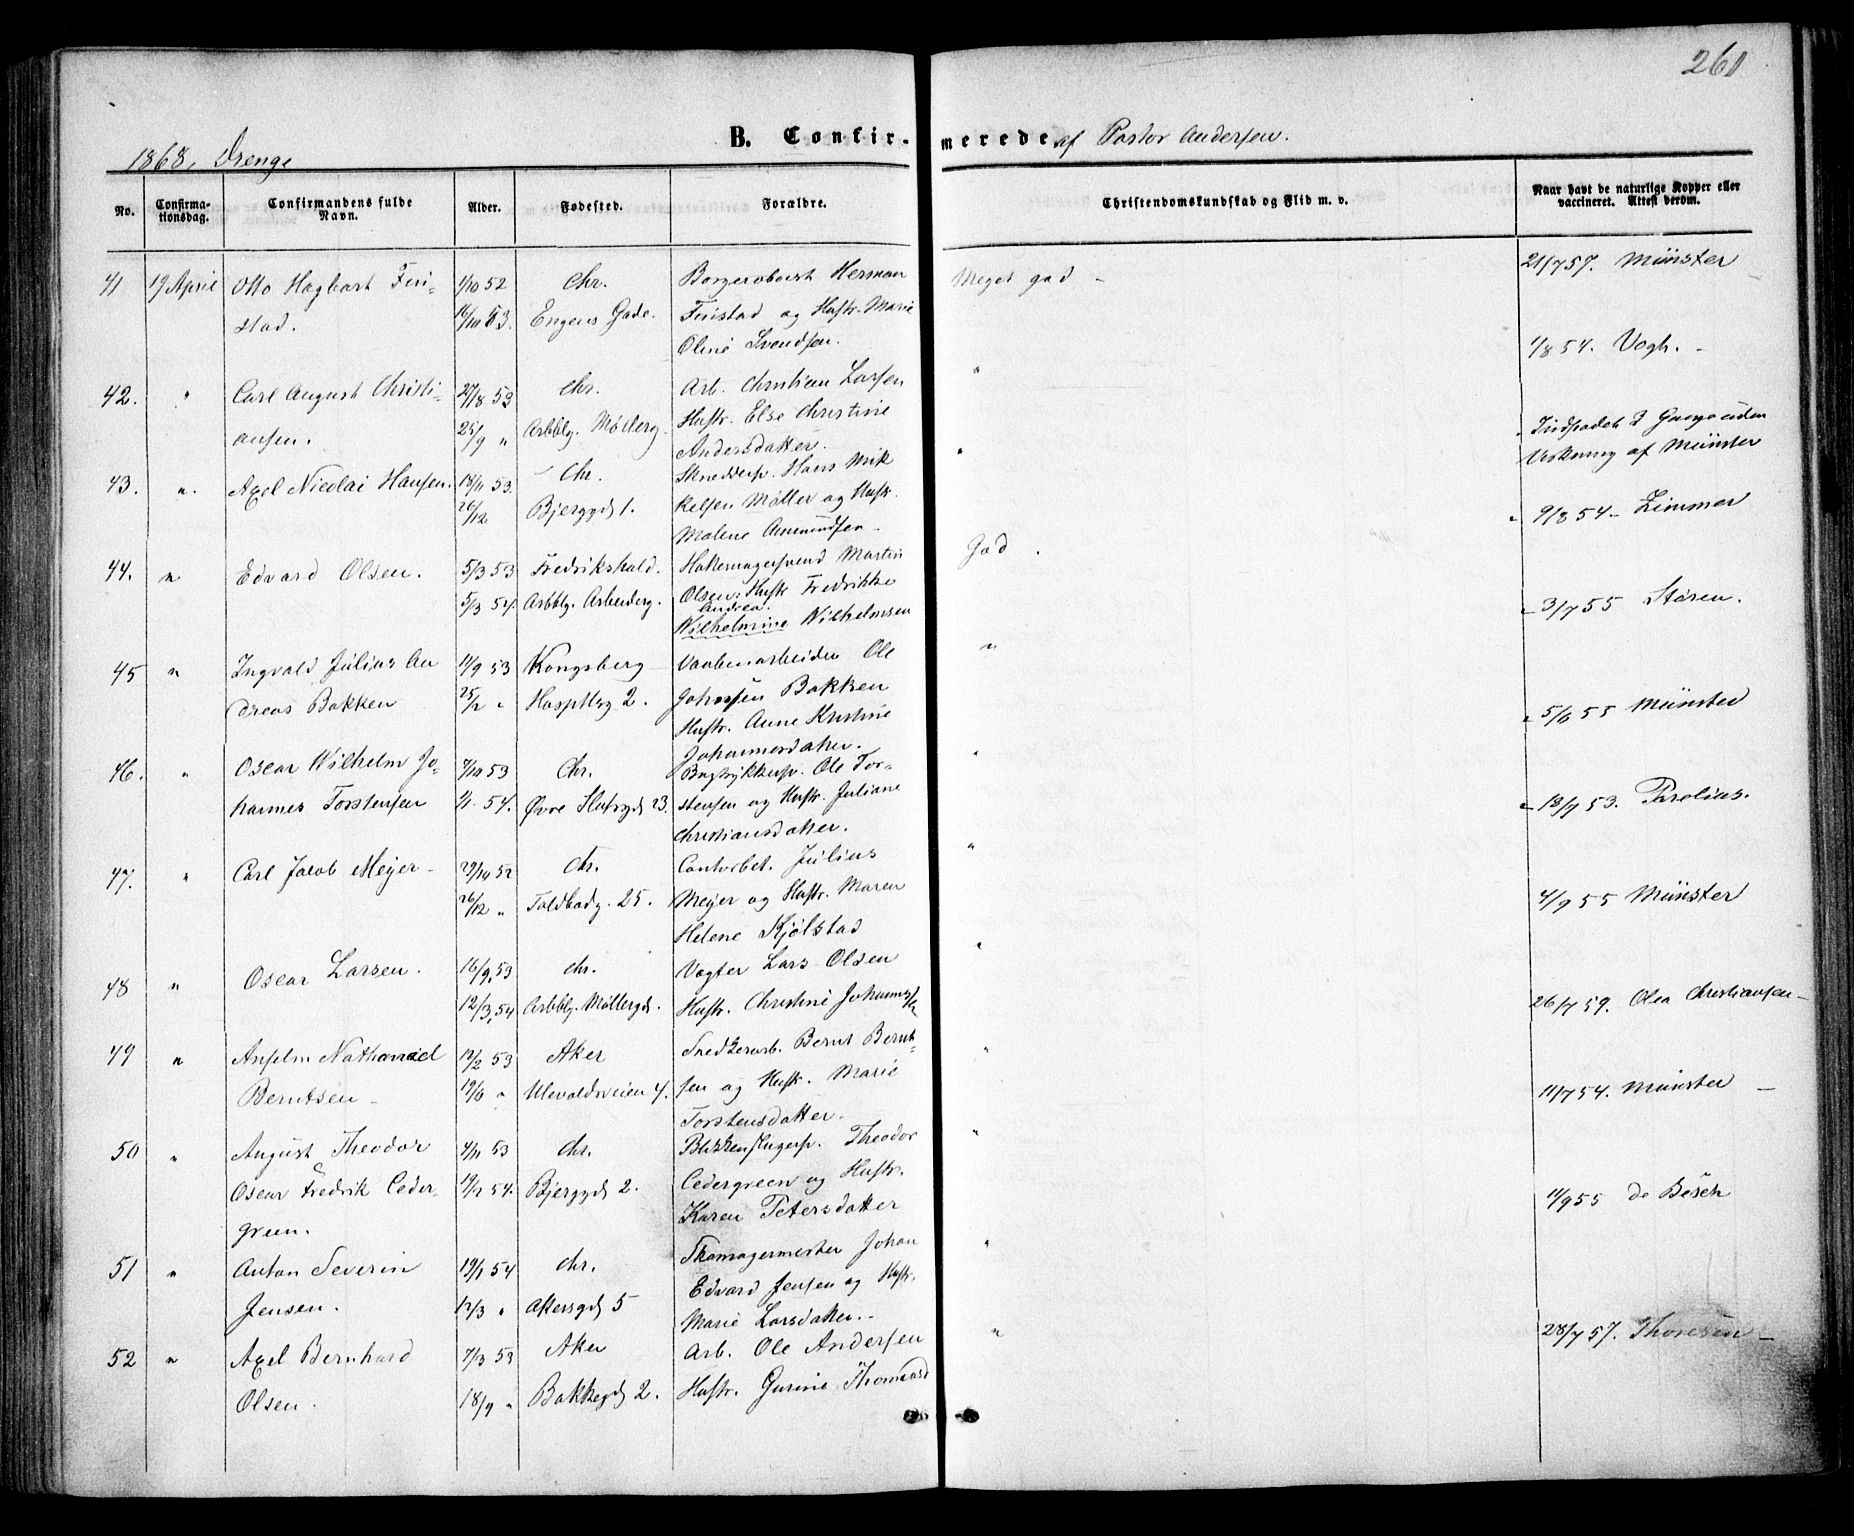 261
1868, Drenge
B. Confirmerede af Pastor Andersen.
No. Confirmationsdag. Confirmandens fulde Navn. Alder. Fødested. Forældre. Christendomskundskab og Flid m. v. Naar havt de naturlige Kopper eller vaccineret. Attest derom.
41 19 April Otto Hagbart Fin- 1/10 52 Chr. Herman Meget god - 21/7 57. Münster
stad. 16/10 53. Engens Gade. Finstad og Hustr. Marie
Oline Svendsen.
42. " Carl August Christi- 27/8 53 Chr. Arb. Christian Larsen " 1/8 54. Vogh. -
ansen. 25/9 " Arbblg. Møllerg. Hustr. Else Christine
Andersdatter.
43. ". Axel Nicolai Hansen. 18/11 53. Chr. Snedkersv. Hans Mik " Indpodet 3 Gange uden
26/12 Bjerggd 1. kelsen Møller og Hustr. Virkning af Münster
Malene Amundsen -
44. " Edvard Olsen. 5/3 53 Fredrikshald. Martin God. 9/8 54 - Zimmer
5/3 54. Arbblg. Olsen. Hustr. Fredrikke
Andrea
Wilhelmine Wilhelmsen
45 " Ingvald Julius An 11/9 53 Kongsberg Vaabenarbeider Ole " 3/7 55 Støren.
dreas Bakken " Hosptlsg 2. Johnsen Bakken
Hustr. Anne Kristine
Johannesdatter.
46. " Oscar Wilhelm Jo- 7/10 53 Chr. Bogtrykkersv. Ole Tor- " 5/6 55 Münster
hannes Torstensen 1/1 54. Øvre 23. stensen og Hustr. Juliane
Christiansdatter.
47. " Carl Jacob Meyer - 29/10 52 Chr. Contorbet. Julius " 13/7 53.
26/12 " Toldbodg. 25. Meyer og Hustr. Maren
Helene Kjølstad
48 " Oscar Larsen. 16/9 53 Chr. Vogter Lars Olsen " 4/9 55 Münster
12/3 54 Arbblg. Møllergd. Hustr. Christine
49 " Anselm Nathanael 12/2 53 Aker Snedkerarb. Bernt Bernt- " 26/7 59. Olea Christiansen -
Berntsen - 19/6 " Ulevoldsveien 4. sen og Hustr. Marie
Torstensdatter.
50 " August Theodor 4/11 53 Chr. Blikkenslagersv. Theodor " 11/7 54. Münster -
Oscar Fredrik Ceder- 54. Bjerggd 2. Cedergreen og Hustr.
green. Karen Petersdatter
51 " Anton Severin 19/1 54 Chr. Skomagermester Johan " 11/9 55 de Besche
Jensen. 12/3 " Akersgd 5 Edvard Jensen og Hustr.
Marie Larsdatter.
52 " Axel Bernhard 7/3 53 Aker Arb. Ole Andersen " 28/7 57. Thoresen -
Olsen. 18/9 " Bakkegd 2. Hustr. Gurine